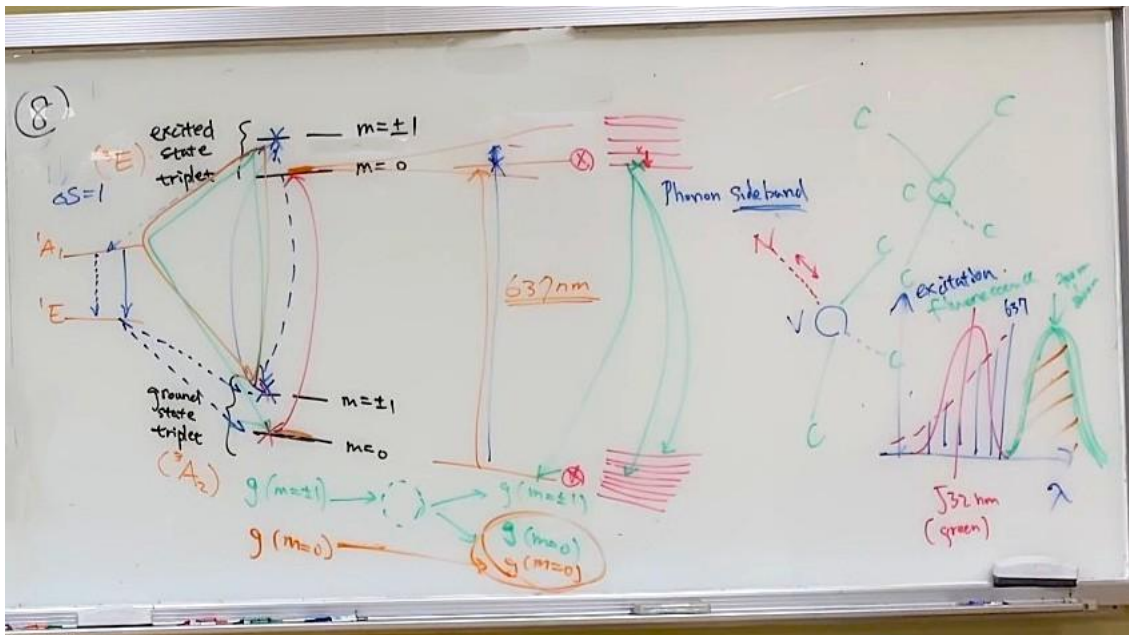 (8)
excited
state
triplet
(³E)
ΔS=1
m=±1
m=0
¹A₁
¹E
637nm
ground
state
triplet
(³A₂)
m=±1
m=0
g(m=±1)
g(m=±1)
g(m=0)
g(m=0)
g(m=0)
Phonon sideband
N
V
C
C
C
C
C
C
C
C
excitation
fluorescence
637
λ
532 nm
(green)